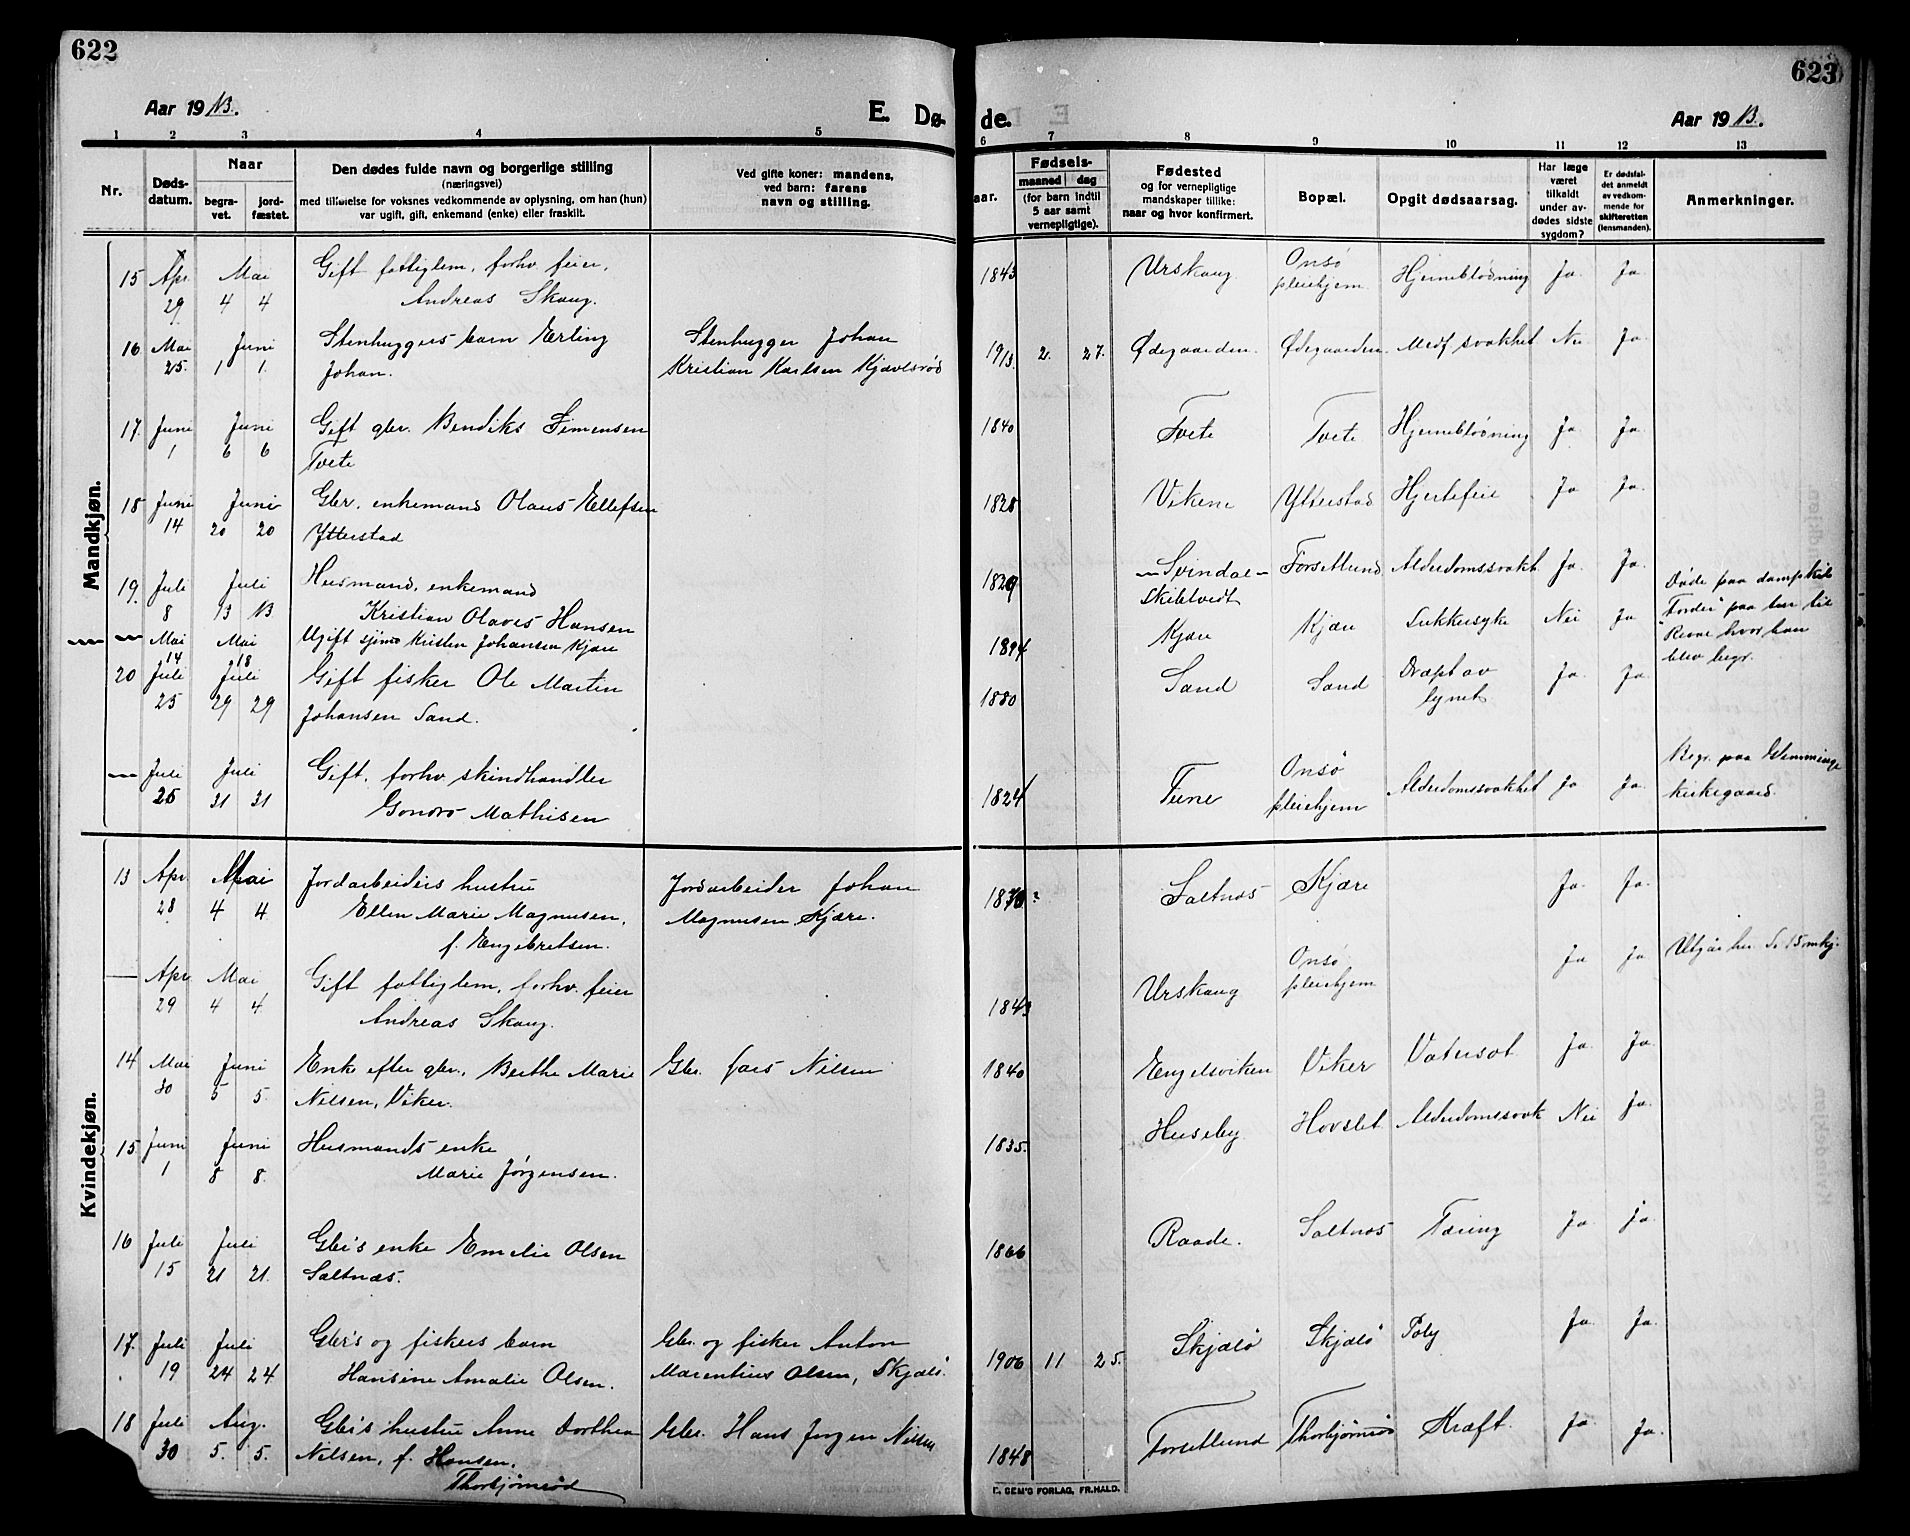 622
623
Aar 1913.
E. Dø-
de.
Aar 1913.
1 2 3 4 5 6 7 8 9 10 11 12 13
Nr.
Døds-
datum.
Naar
begra-
vet.
jord-
fæstet.
Den dødes fulde navn og borgerlige stilling
(næringsvei)
med tilføielse for voksnes vedkommende av oplysning, om han (hun)
var ugift, gift, enkemand (enke) eller fraskilt.
Ved gifte koner: mandens,
ved barn: farens
navn og stilling.
aar.
Fødsels-
maaned dag
(for barn indtil
5 aar samt
vernepligtige).
Fødested
og for vernepligtige
mandskaper tillike:
naar og hvor konfirmert.
Bopæl.
Opgit dødsaarsag.
Har læge
været
tilkaldt
under av-
dødes sidste
sygdom?
Er dødsfal-
det anmeldt
av vedkom-
mende for
skifteretten
(lensmanden).
Anmerkninger.
Mandkjøn.
15 Apr. Mai Gift fattiglem, forhv. feier, 1843 Urskaug Onsö Hjerneblödning Ja Ja
29 4 4 Andreas Skaug. pleiehjem
16 Mai Juni Stenhuggers barn Erling Stenhugger Johan 1913 2. 27. Ødegaarden. Ødegaarden. Medf. svakhet Nei Ja.
25. 1 1. Johan. Kristian Karlsen Kjævlesrød
17. Juni Juni Gift gbr. Bendiks Simensen 1840 Tvete Tvete Hjerneblödning Ja Ja.
1 6 6 Tvete
18 Juni Juni Gbr. enkemand Olaus Ellefsen 1828 Vikene Ytterstad Hjertefeil Ja Ja.
14 20 20 Ytterstad
19. Juli Juli Husmand, enkemand 1829 Svindal Forsetlund Alderdomssvakht Ja. Ja.
8 13 13 Kristian Olaves Hansen Skibtvedt
Mai Mai Ugift sjöm. Kristen Johansen Kjære 1894 Kjære Kjære Sukkersyke Nei Ja Döde paa dampskib
14 18 "Fordei" paa tur til
Revae hvor han
blev begr.
20 Juli Juli Gift fisker Ole Martin 1880 Sand Sand Dræpt av Ja. Ja.
25 29 29 Johansen Sand. lynet
Juli Juli Gift, forhv. skindhandler 1824 Tune Onsö Alderdomssvakhet Ja Ja. Begr. paa Glemminge
25 31 31 Gondro Mathisen pleiehjem kirkegaard.
Kvindekjøn.
13 Apr. Mai Jordarbeiders hustru Jordarbeider Johan 1870? Saltnæs Kjære Ja. Ja.
28 4 4. Ellen Marie Magnusen, Magnusen Kjære.
f. Engebretsen.
Apr. Mai Gift fattiglem, forhv. feier 1843 Urskaug Onsö Ja Ja Utgår her. Se 15 mkj.
29 4 4. Andreas Skaug. pleiehjem
14 Mai Juni Enke efter gbr. Berthe Marie Gbr. Lars Nilsen 1840 Engelsviken Viker Vatersot Ja. Ja.
30 5 5. Nilsen, Viker.
15 Juni Juni Husmands enke 1835. Huseby Hovslet Alderdomssvak Nei Ja.
1 8 8. Marie Jørgensen.
16 Juli Juli Gbr's enke Emelie Olsen 1866 Raade. Saltnæs Tæring Ja. ja.
15 21 21. Saltnæs.
17. Juli Juli Gbr's og fiskers barn Gbr. og fisker Anton 1906 11 25. Skjælö Skjælö Poly Ja. Ja.
19 24 24 Hansine Amalie Olsen. Marentius Olsen, Skjælö.
18 Juli Aug. Gbr's hustru Anne Dorthea Gbr. Hans Jörgen Nilsen 1848 Forsetlund Thorbjørnsrö Kræft. Ja. Ja.
30 5. 5. Nilsen, f. Hansen.
Thorbjørnsrød
E. SEM'S FORLAG, FR.HALD.